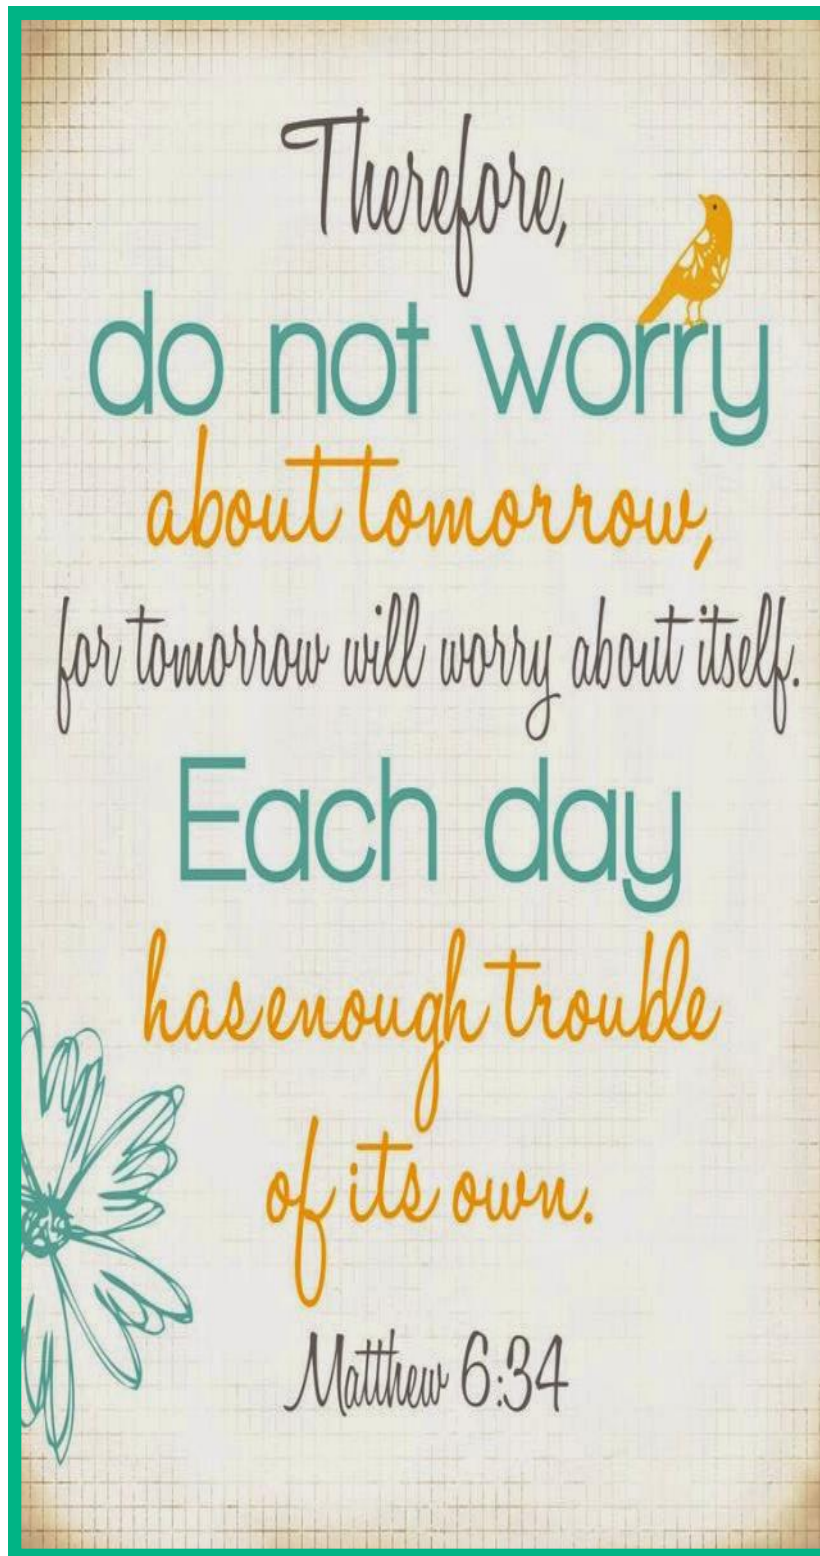 Therefore,
do not worry
about tomorrow,
for tomorrow will worry about itself.
Each day
has enough trouble
of its own.
Matthew 6:34